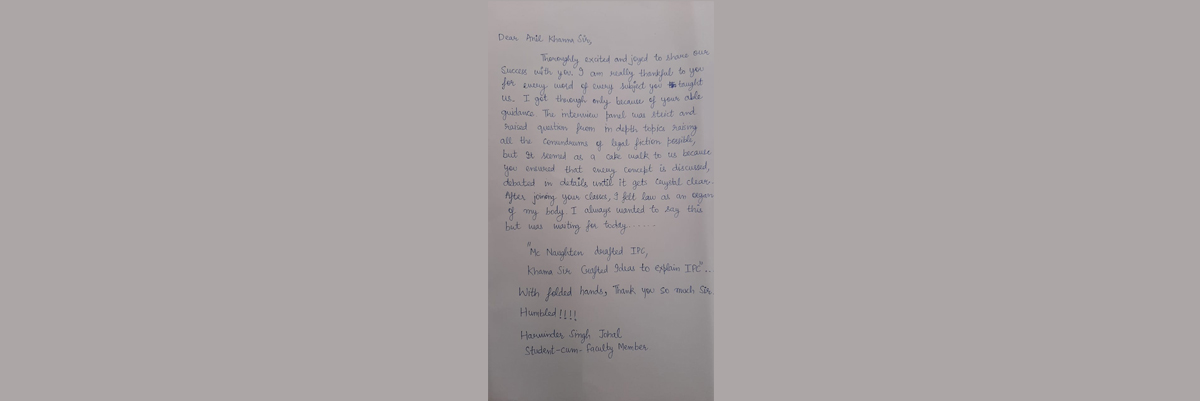 Dear Anil Khanna Sir,
Thoroughly excited and joyed to share our
Success with you. I am really thankful to you
for every word of every subject you taught
us. I got through only because of your able
guidance. The interview panel was strict and
raised question from in depth topics raising
all the conundrums of legal fiction possible,
but it seemed as a cake walk to us because
you ensured that every concept is discussed,
debated in details until it gets crystal clear.
After joining your classes, I felt law as an organ
of my body. I always wanted to say this
but was waiting for today......
"Mc Naughten drafted IPC,
Khanna Sir Crafted Ideas to explain IPC"..
With folded hands, Thank you so much Sir.
Humbled!!!!
Harwinder Singh Johal
Student-cum-Faculty Member